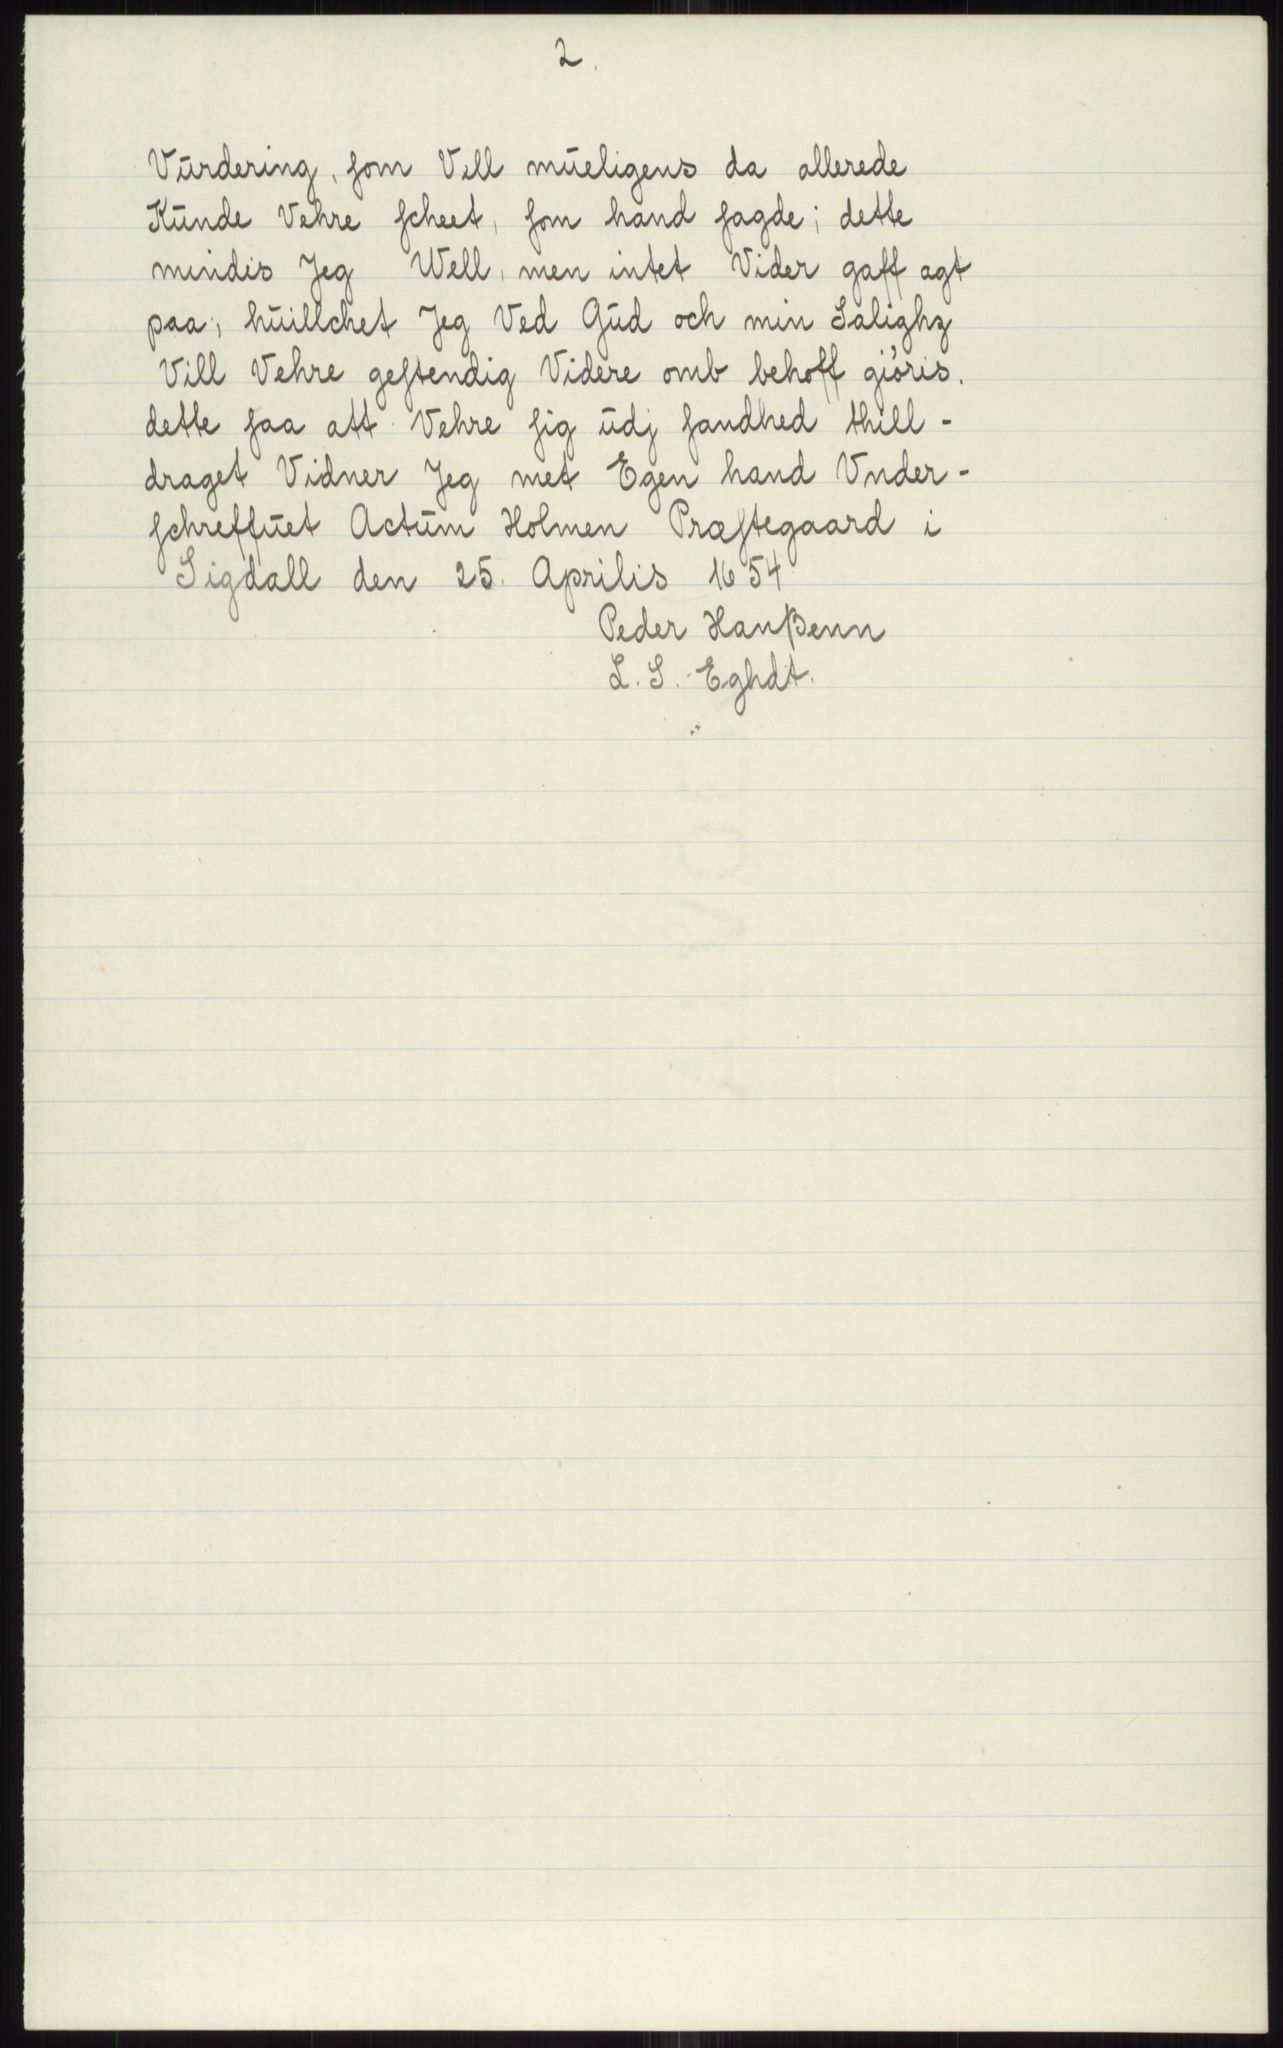 2.
Vūrdering, som Vell mūeligens da allerede
Kūnde Vehre scheet, som hand sagde; dette
mindis Jeg Well, men intet Vider gaff agt
paa; hūillchet Jeg Ved Gūd och min Salighz
Vill Vehre gestendig Videre omb behoff giöris.
dette saa att Vehre sig ūdj sandhed thill-
draget Vidner Jeg met Egen hand Vnder-
schreffūet Actūm Holmen Præstegaard i
Sigdall den 25. Aprilis 1654
Peder Hanßenn
L. S. Eghdt.